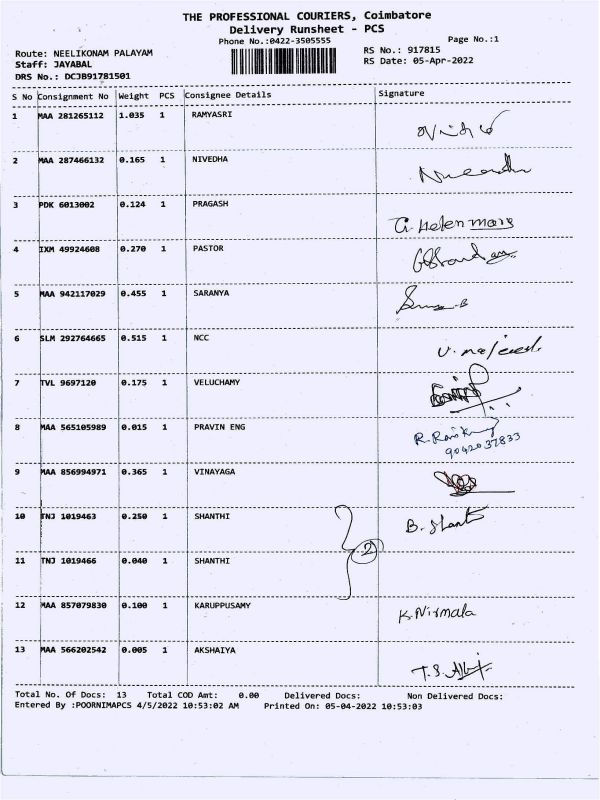 THE PROFESSIONAL COURIERS, Coimbatore
Delivery Runsheet - PCS
Phone No.:0422-3505555
Page No.:1
Route: NEELIKONAM PALAYAM
RS No.: 917815
Staff: JAYABAL
RS Date: 05-Apr-2022
DRS No.: DCJB91781501
S No Consignment No Weight PCS Consignee Details Signature
1 MAA 281265112 1.035 1 RAMYASRI
2 MAA 287466132 0.165 1 NIVEDHA
3 PDK 6013002 0.124 1 PRAGASH
G. Helen mary
4 IXM 49924608 0.270 1 PASTOR
5 MAA 942117029 0.455 1 SARANYA
6 SLM 292764665 0.515 1 NCC
7 TVL 9697120 0.175 1 VELUCHAMY
8 MAA 565105989 0.015 1 PRAVIN ENG
9042037833
9 MAA 856994971 0.365 1 VINAYAGA
10 TNJ 1019463 0.250 1 SHANTHI
2
11 TNJ 1019466 0.040 1 SHANTHI
12 MAA 857079830 0.100 1 KARUPPUSAMY
K. Nirmala
13 MAA 566202542 0.005 1 AKSHAIYA
Total No. Of Docs: 13 Total COD Amt: 0.00 Delivered Docs: Non Delivered Docs:
Entered By :POORNIMAPCS 4/5/2022 10:53:02 AM Printed On: 05-04-2022 10:53:03